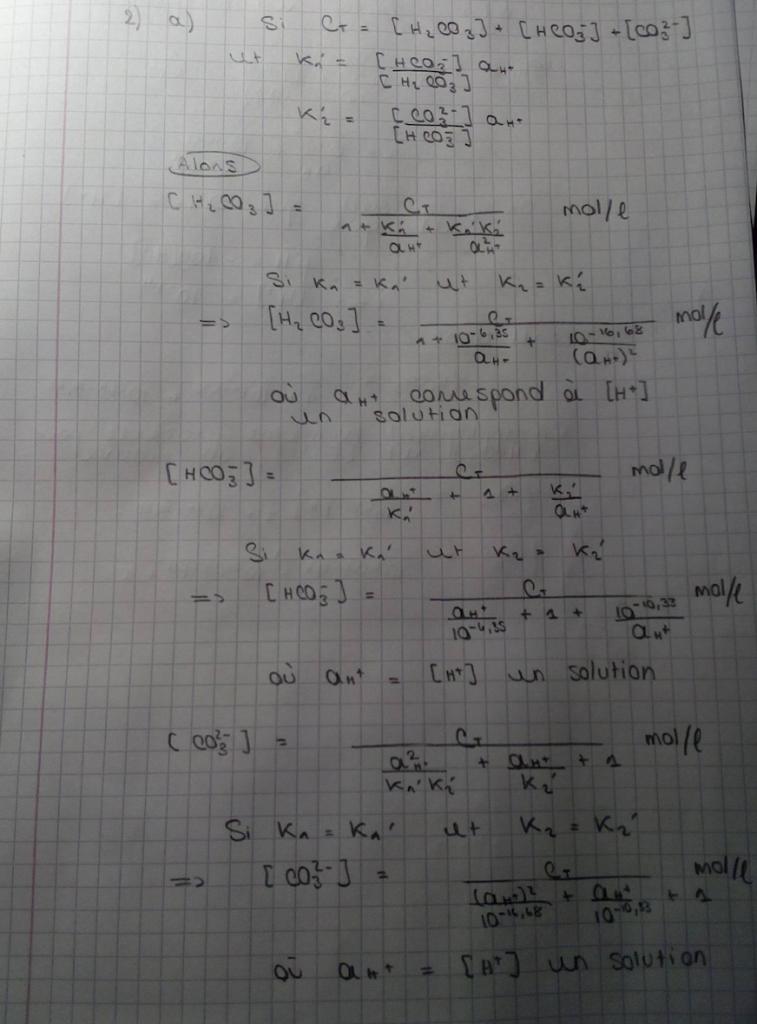 2) a) Si C_T = [H₂CO₃] + [HCO₃⁻] + [CO₃²⁻]
et K₁' = [HCO₃⁻] / [H₂CO₃] a_H⁺
K₂' = [CO₃²⁻] / [HCO₃⁻] a_H⁺
Alors
[H₂CO₃] = C_T / (1 + K₁'/a_H⁺ + K₁'K₂'/a²_H⁺) mol/l
Si K₁ = K₁' et K₂ = K₂'
=> [H₂CO₃] = C_T / (1 + 10^-6,35/a_H⁺ + 10^-16,68/(a_H⁺)²) mol/l
où a_H⁺ correspond à [H⁺]
en solution
[HCO₃⁻] = C_T / (a_H⁺/K₁' + 1 + K₂'/a_H⁺) mol/l
Si K₁ = K₁' et K₂ = K₂'
=> [HCO₃⁻] = C_T / (a_H⁺/10^-6,35 + 1 + 10^-10,33/a_H⁺) mol/l
où a_H⁺ = [H⁺] en solution
[CO₃²⁻] = C_T / (a²_H⁺/K₁'K₂' + a_H⁺/K₂' + 1) mol/l
Si K₁ = K₁' et K₂ = K₂'
=> [CO₃²⁻] = C_T / ((a_H⁺)²/10^-16,68 + a_H⁺/10^-10,33 + 1) mol/l
où a_H⁺ = [H⁺] en solution